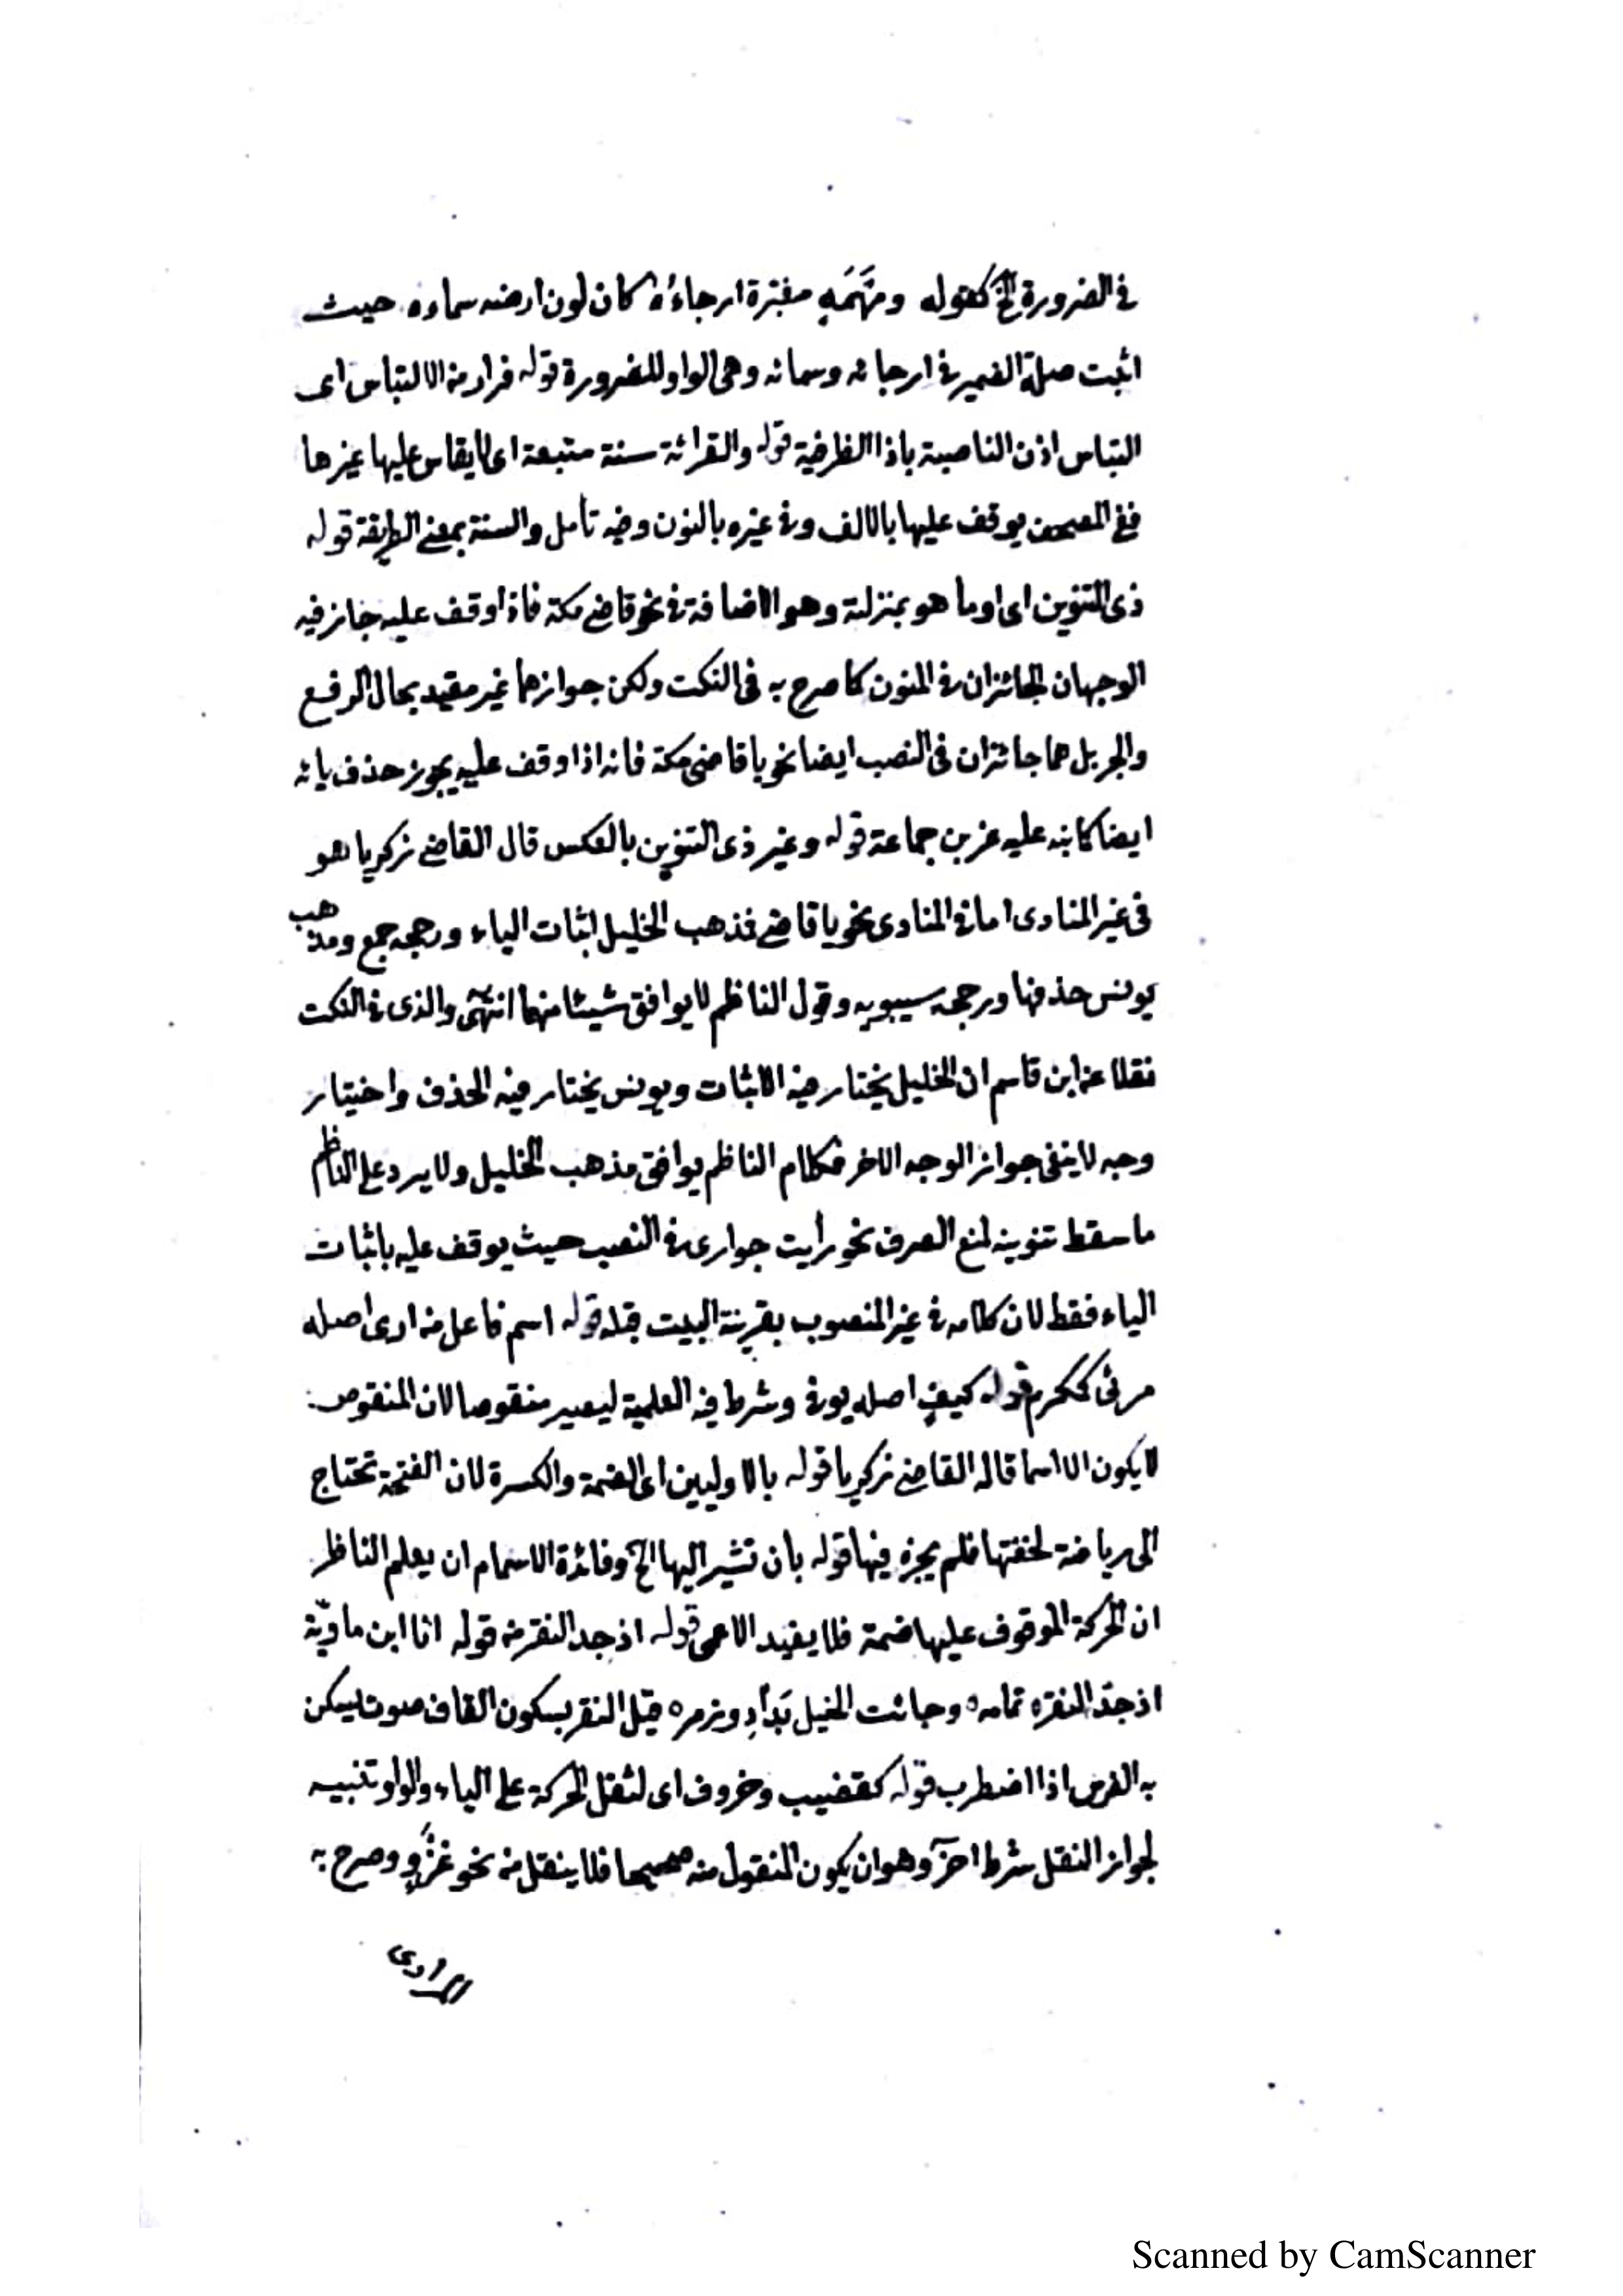 في الضرورة الخ كقوله ومَهْمَهٍ مغبرة ارجاءُه كان لون ارضه سماءه حيث
اثبت صلة الضمير في ارجائه وسمائه وهي الواو للضرورة قوله فرار من الالتباس اى
التباس اذن الناصبة باذا الظرفية قوله والقرائة سنة متبعة اى لا يقاس عليها غيرها
ففي المصحف يوقف عليها بالالف وفي غيره بالنون وفيه تأمل والسنة بمعنى الطريقة قوله
ذى التنوين اى او ما هو بمنزلته وهو الاضافة في نحو قاضي مكة فاذا وقف عليه جاز فيه
الوجهان الجائزان في المنون كما صرح به في النكت ولكن جوازهما غير مقيد بحال الرفع
والجر بل هما جائزان في النصب ايضا نحو يا قاضي مكة فانه اذا وقف عليه يجوز حذف يائه
ايضا كما نبه عليه عز بن جماعة قوله وغير ذى التنوين بالعكس قال القاضي زكريا هو
في غير المنادى اما في المنادى نحو يا قاضي فذهب الخليل اثبات الياء ورجحه جمع ومذهب
يونس حذفها ورجحه سيبويه وقول الناظم لا يوافق شيئا منهما انتهى والذى في النكت
نقلا عن ابن قاسم ان الخليل يختار فيه الاثبات ويونس يختار فيه الحذف واختيار
وجه لا ينفى جواز الوجه الاخر فكلام الناظم يوافق مذهب الخليل ولا يرد على الناظم
ما سقط تنوينه لمنع الصرف نحو رأيت جوارى في النصب حيث يوقف عليه باثبات
الياء فقط لان كلامه في غير المنصوب بقرينة البيت قبله قوله اسم فاعل من ارى اصله
مرئى كمكرم قوله كيفٍ اصله يوفي وشرط فيه العلمية ليصير منقوصا لان المنقوص
لا يكون الا اسما قاله القاضي زكريا قوله بالاوليين اى الضمة والكسرة لان الفتحة تحتاج
الى رياضة لخفتها فلم يجزه فيها قوله بان تشير اليها الخ وفائدة الاشمام ان يعلم الناظر
ان الحركة الموقوف عليها ضمة فلا يفيد الاعمى قوله اذ جد النقر من قوله انا ابن ماويّة
اذ جدّ النقره تمامه وجائت الخيل بَدَأدِ وزمره قيل النقر بسكون القاف صوت ليسكن
به الفرس اذا اضطرب قوله كقضيب وخروف اى لثقل الحركة على الياء والواو تنبيه
لجواز النقل شرط اخر وهو ان يكون المنقول منه صحيحا فلا ينقل من نحو غزْوٍ وصرح به
المرادى
Scanned by CamScanner